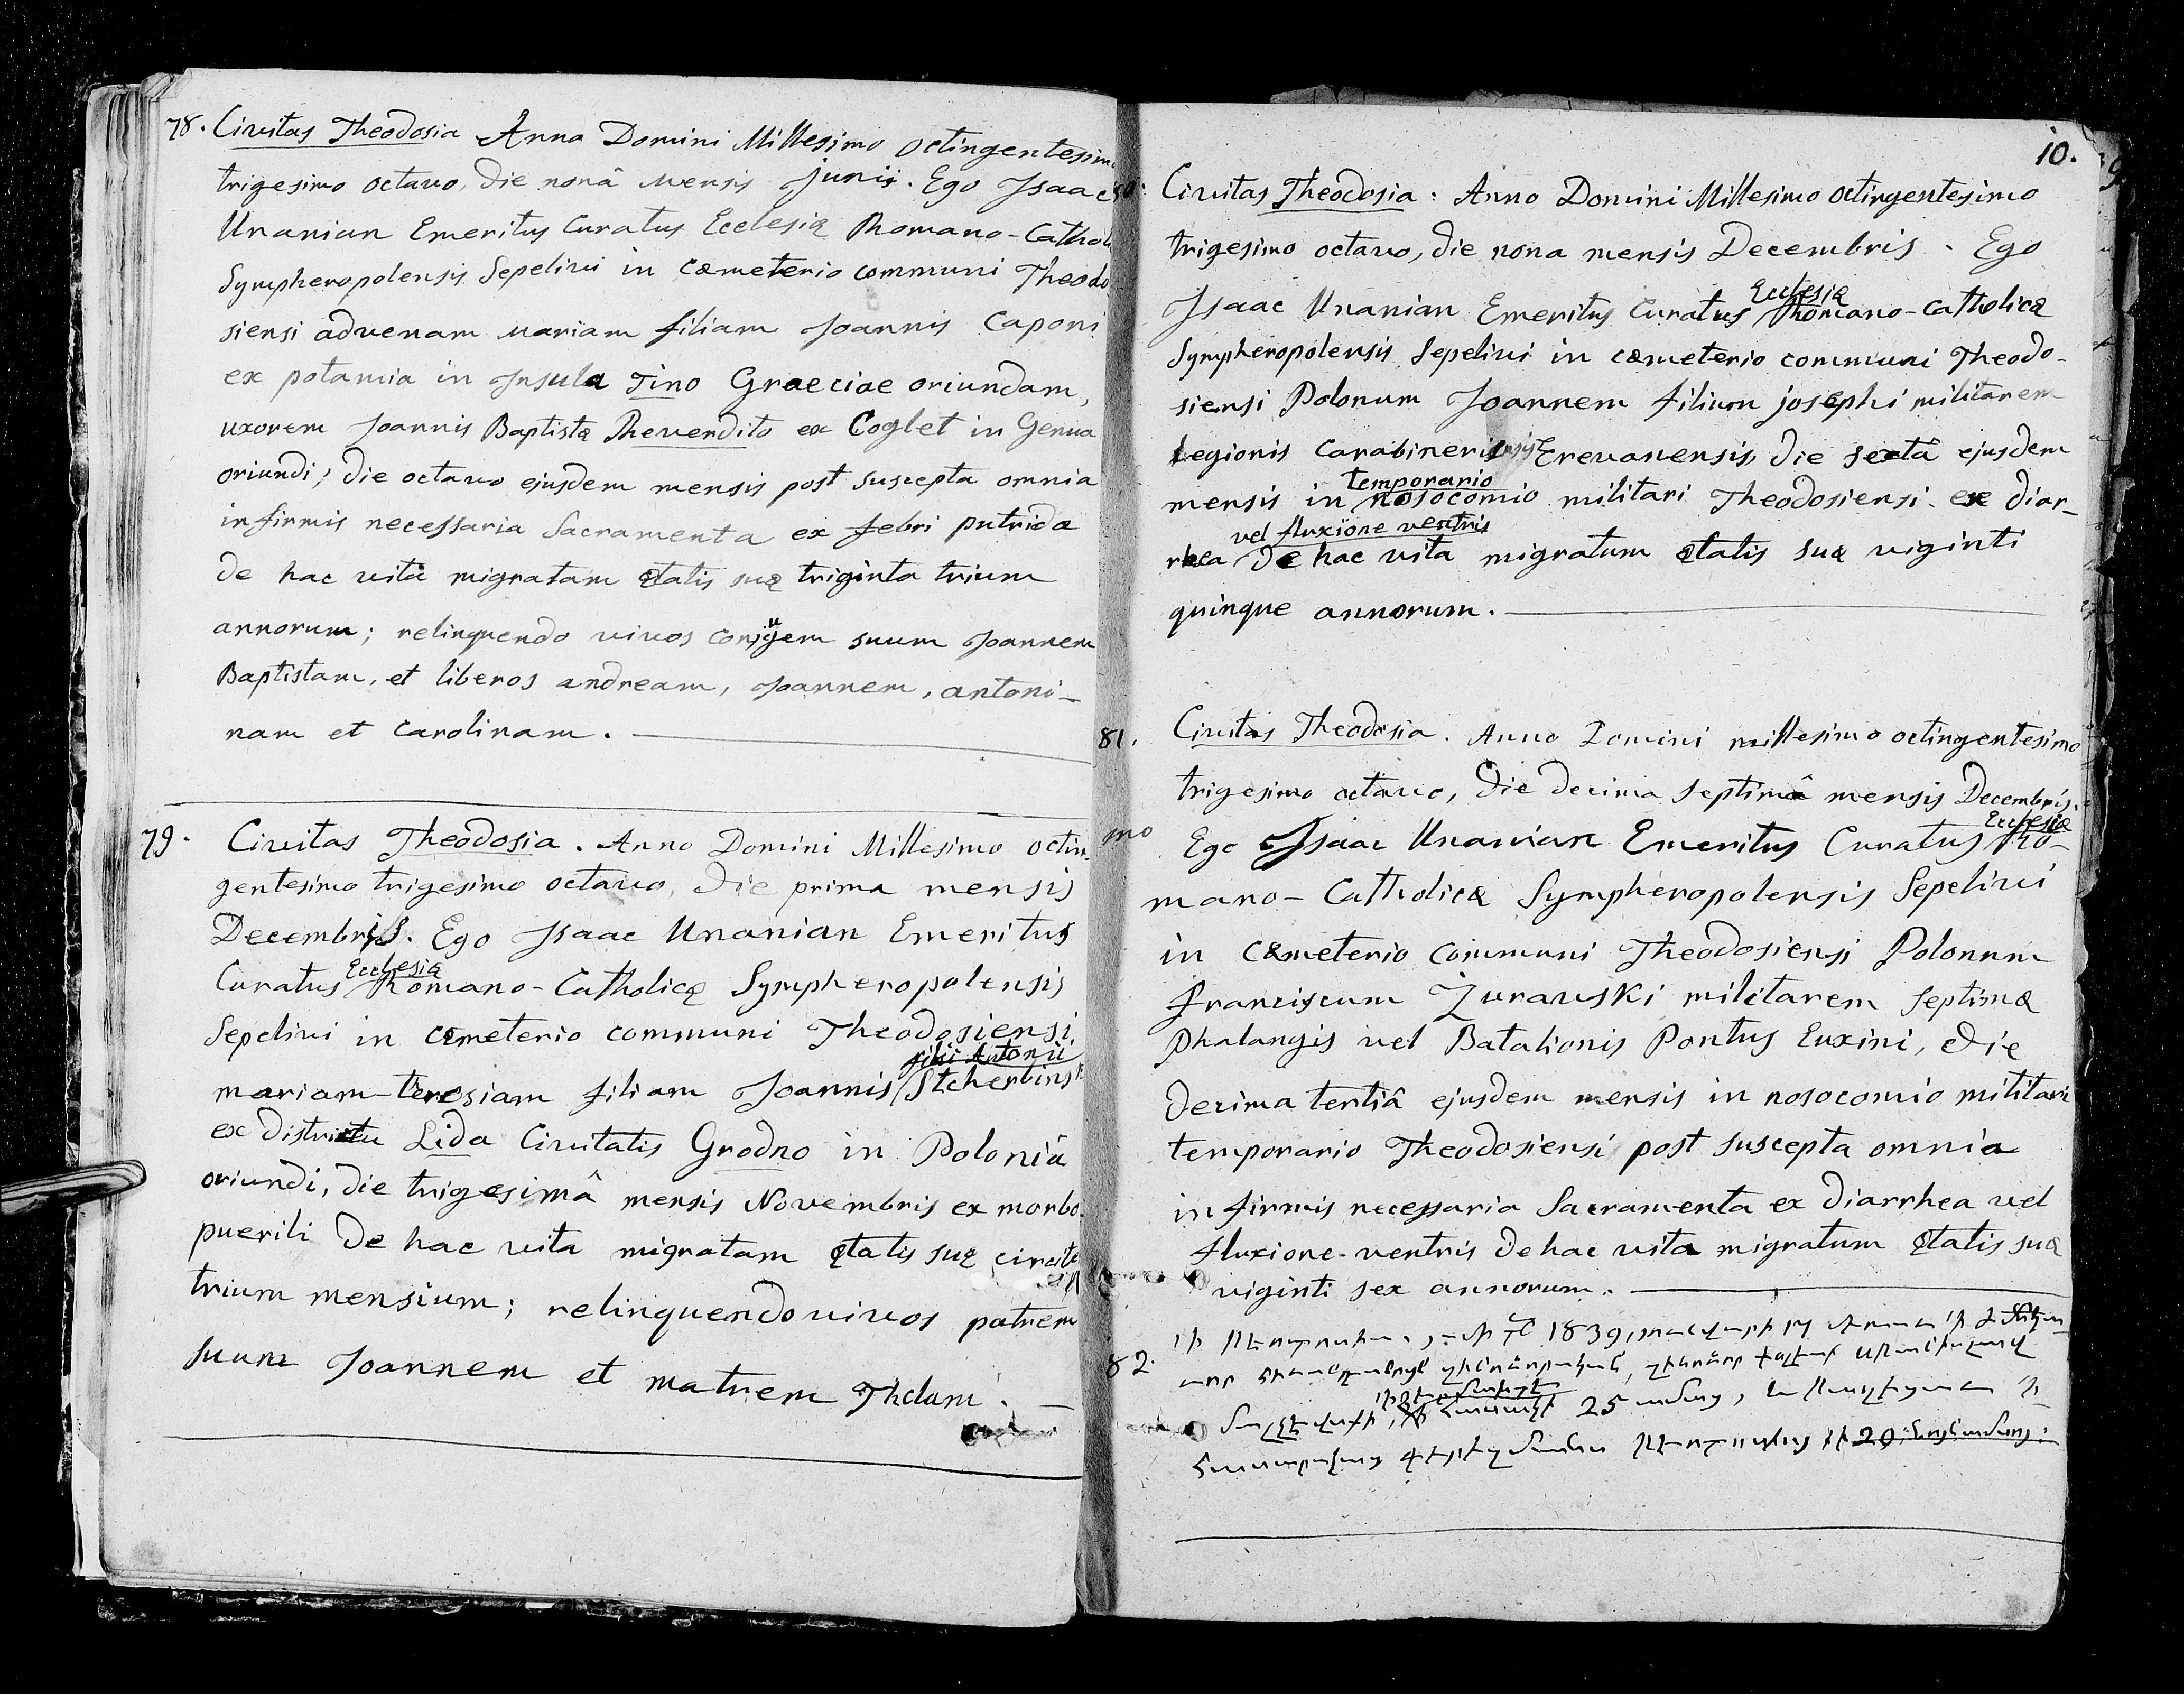 78. Civitas Theodosia Anno Domini Millesimo octingentesimo
trigesimo octavo, die nonâ mensis Junij. Ego Isaac
Unanian Emeritus Curatus Ecclesiæ Romano-Cathol
Sympheropolensis Sepelivi in cæmeterio communi Theodo
siensi advenam mariam filiam Joannis Caponi
ex potamia in Insula Tino Graeciae oriundam,
uxorem Joannis Baptistæ Revendito ex Coglet in Genua
oriundi; die octavo ejusdem mensis post suscepta omnia
infirmis necessaria Sacramenta ex febri putrida
de hac vitâ migratam ætatis suæ triginta trium
annorum; relinquendo vivos conjugem suum Joannem
Baptistam, et liberos andream, Joannem, antoni-
nam et carolinam.
79. Civitas Theodosia. Anno Domini Millesimo octin-
gentesimo trigesimo octavo, die prima mensis
Decembris. Ego Isaac Unanian Emeritus
Curatus Ecclesiæ Romano-Catholicæ Sympheropolensis
Sepelivi in cæmeterio communi Theodosiensi
mariam-teresiam filiam Joannis filii Antonii Stcherbinsk
ex districtu Lida Civitatis Grodno in Poloniâ
oriundi, die trigesimâ mensis Novembris ex morbo
puerili de hac vita migratam ætatis suæ circite
trium mensium; relinquendo vivos patrem
suum Joannem et matrem Theclam. —
10.
80. Civitas Theodosia: Anno Domini Millesimo octingentesimo
trigesimo octavo, die nona mensis Decembris. Ego
Isaac Unanian Emeritus Curatus Ecclesiæ Romano-catholicæ
Sympheropolensis Sepelivi in cæmeterio communi Theodo-
siensi Polonum Joannem filium josephi militarem
Legionis Erevanensis die sextâ ejusdem
mensis in temporario nosocomio militari Theodosiensi ex diar-
rhea vel fluxione ventris de hac vita migratum ætatis suæ viginti
quinque annorum.
81. Civitas Theodosia. Anno Domini millesimo octingentesimo
trigesimo octavo, die decima septimâ mensis Decembris.
Ego Isaac Unanian Emeritus Curatus Ecclesiæ Ro-
mano-Catholicæ Sympheropolensis Sepelivi
in cæmeterio communi Theodosiensi Polonum
franciscum Zurawski militarem septimæ
Phalangis vel Batalionis Pontus Euxini, die
decima tertiâ ejusdem mensis in nosocomio militari
temporario Theodosiensi post suscepta omnia
infirmis necessaria Sacramenta ex diarrhea vel
fluxione-ventris de hac vita migratum ætatis suæ
viginti sex annorum.
82. 1839
25
20